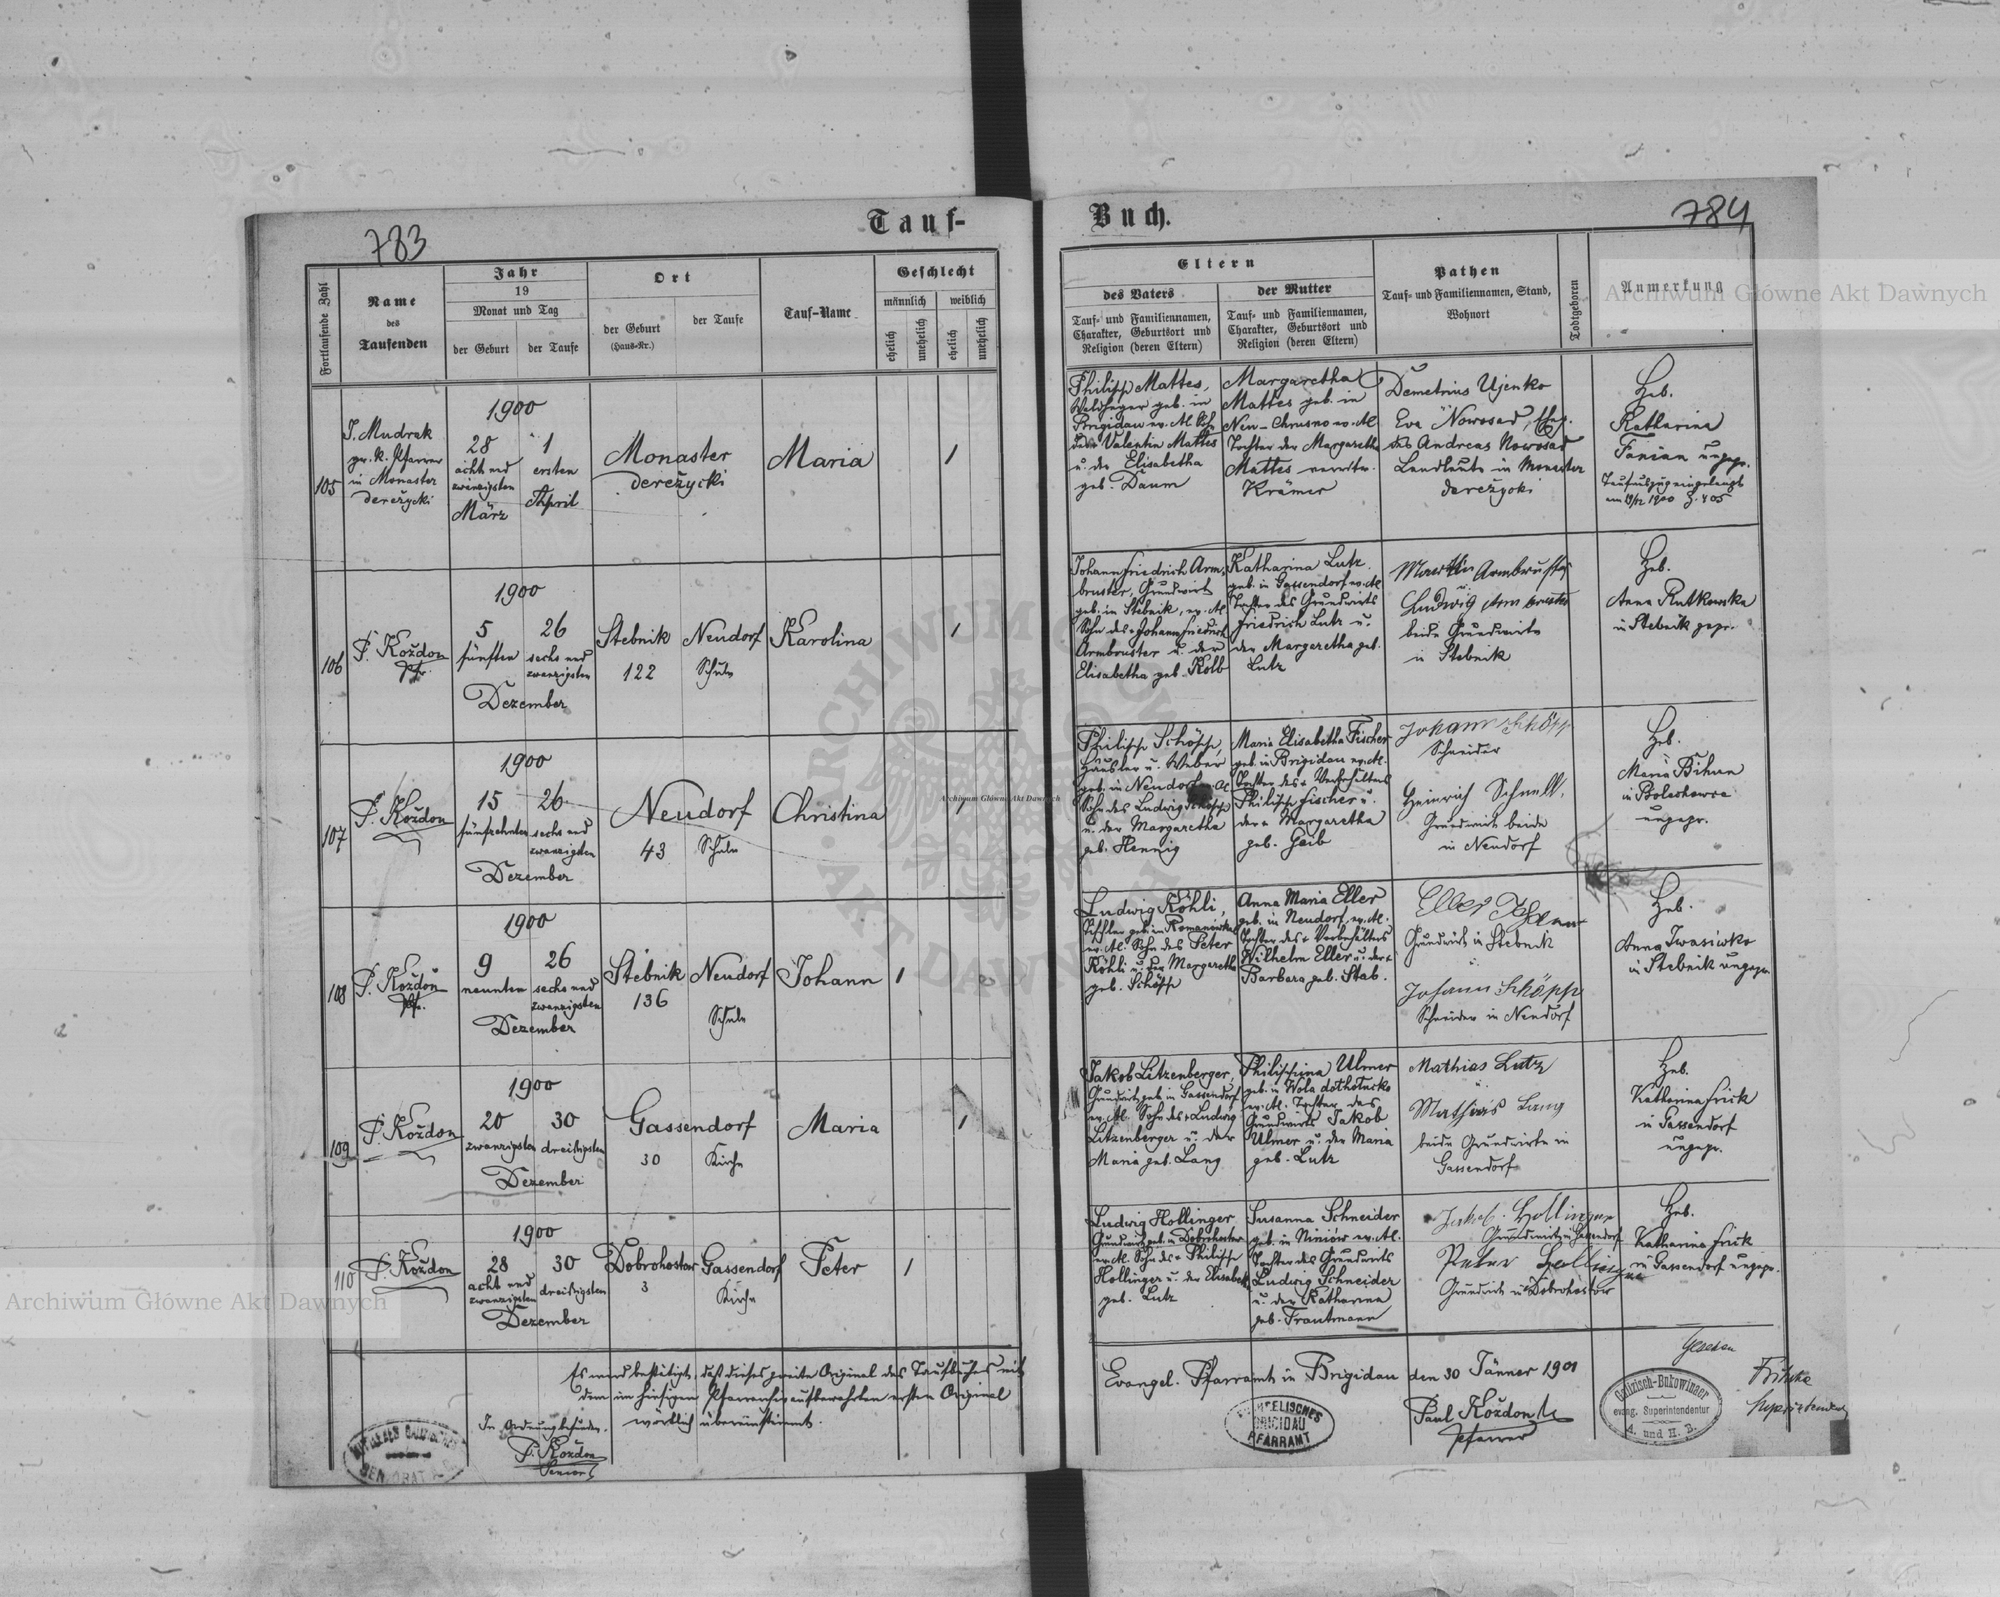 783
Tauf-
Fortlaufende Zahl
Name
des
Taufenden
Jahr
19
Monat und Tag
der Geburt
der Taufe
Ort
der Geburt
(Haus-Nr.)
der Taufe
Tauf-Name
Geschlecht
männlich
weiblich
ehelich
unehelich
ehelich
unehelich
105
J. Mudrak
gr. k. Pfarrer
in Monaster
dereżycki
1900
28
acht und
zwanzigsten
März
1
ersten
April
Monaster
dereżycki
Maria
1
106
P. Kożdon
Pfr.
1900
5
fünften
26
sechs und
zwanzigsten
Dezember
Stebnik
122
Neudorf
Schule
Karolina
1
107
P. Kożdon
1900
15
fünfzehnten
26
sechs und
zwanzigsten
Dezember
Neudorf
43
Schule
Christina
1
108
P. Kożdon
Pfr.
1900
9
neunten
26
sechs und
zwanzigsten
Dezember
Stebnik
136
Neudorf
Schule
Johann
1
109
P. Kożdon
1900
20
zwanzigsten
30
dreißigsten
Dezember
Gassendorf
30
Kirche
Maria
1
110
P. Kożdon
1900
28
acht und
zwanzigsten
30
dreißigsten
Dezember
Dobrohostow
3
Gassendorf
Kirche
Peter
1
Es wird bestätigt, daß dieses zweite Original des Taufbuches mit
dem im hiesigen Pfarrarchiv aufbewahrten ersten Original
wörtlich übereinstimmt.
In Ordnung befunden.
P. Kożdon
Senior
784
Buch.
Eltern
des Vaters
Tauf- und Familiennamen,
Charakter, Geburtsort und
Religion (deren Eltern)
der Mutter
Tauf- und Familiennamen,
Charakter, Geburtsort und
Religion (deren Eltern)
Pathen
Tauf- und Familiennamen, Stand,
Wohnort
Todtgeboren
Anmerkung
Philipp Mattes,
Waldheger geb. in
Brigidau ev. AC
des Valentin Mattes
u. der Elisabetha
geb. Daum
Margaretha
Mattes geb. in
Neu-Chrusno ev. AC
Tochter der Margaretha
Mattes verwitw.
Krämer
Demetrius Ujenko
Eva Nowosad,
des Andreas Nowosad
Landleute in Monaster
dereżycki
Heb.
Katharina
Fanian ungepr.
Taufauszug eingelangt
1900 Z. 405
Johann Friedrich Arm-
bruster, Grundwirt
geb. in Stebnik, ev. AC
Sohn des + Johann Friedrich
Armbruster u. der
Elisabetha geb. Kolb
Katharina Lutz
geb. in Gassendorf ev. AC
Tochter des Grundwirts
Friedrich Lutz u.
der Margaretha geb.
Lutz
Martin Armbruster
Ludwig Armbruster
beide Grundwirte
in Stebnik
Heb.
Anna Rutkowska
in Stebnik gepr.
Philipp Schöpp,
Häusler u. Weber
geb. in Neudorf ev. AC
Sohn des Ludwig Schöpp
u. der Margaretha
geb. Hennig
Maria Elisabetha Fischer
geb. in Brigidau ev. AC.
Tochter des + Vorbehälters
Philipp Fischer u.
der + Margaretha
geb. Geib
Johann Schöpp
Schneider
Heinrich Schnell,
Grundwirt beide
in Neudorf
Heb.
Maria Bihun
in Bolechowce
ungepr.
Ludwig Köhli,
Tischler geb. in Romanówka
ev. AC. Sohn des Peter
Köhli u. der Margaretha
geb. Schöpp
Anna Maria Eller
geb. in Neudorf, ev. AC.
Tochter des + Vorbehälters
Wilhelm Eller u. der +
Barbara geb. Stab.
Eller Johann
Grundwirt in Stebnik
Johann Schöpp
Schneider in Neudorf
Heb.
Anna Iwasiwko
in Stebnik ungepr.
Jakob Litzenberger,
Grundwirt geb. in Gassendorf
ev. AC. Sohn des + Ludwig
Litzenberger u. der
Maria geb. Lang
Philippina Ulmer
geb. in Wola dołhołucka
ev. AC. Tochter des
Grundwirts Jakob
Ulmer u. der Maria
geb. Lutz
Mathias Lutz
Mathias Lang
beide Grundwirte in
Gassendorf
Heb.
Katharina Frick
in Gassendorf
ungepr.
Ludwig Hollinger
Grundwirt geb. in Dobrohostow
ev. AC. Sohn des + Philipp
Hollinger u. der Elisabeth
geb. Lutz
Susanna Schneider
geb. in Niniów ev. AC.
Tochter des Grundwirts
Ludwig Schneider
u. der Katharina
geb. Trautmann
Jakob Hollinger
Grundwirt in Gassendorf
Peter Hollinger
Grundwirt in Dobrohostow
Heb.
Katharina Frick
in Gassendorf ungepr.
Evangel. Pfarramt in Brigidau den 30 Jänner 1901
Paul Kożdon
Pfarrer
EVANGELISCHES
BRIGIDAU
PFARRAMT
Gesehen
Galizisch-Bukowinaer
evang. Superintendentur
A. und H. B.
Fritsche
Superintendent
Archiwum Główne Akt Dawnych
Archiwum Główne Akt Dawnych
Archiwum Główne Akt Dawnych
ARCHIWUM GŁÓWNE AKT DAWNYCH